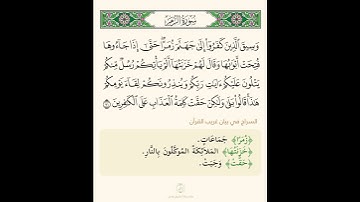 سُورَةُ الزُّمَرِ
وَسِيقَ الَّذِينَ كَفَرُوا إِلَىٰ جَهَنَّمَ زُمَرًا حَتَّىٰ إِذَا جَاءُوهَا
فُتِحَتْ أَبْوَابُهَا وَقَالَ لَهُمْ خَزَنَتُهَا أَلَمْ يَأْتِكُمْ رُسُلٌ مِنْكُمْ
يَتْلُونَ عَلَيْكُمْ آيَاتِ رَبِّكُمْ وَيُنْذِرُونَكُمْ لِقَاءَ يَوْمِكُمْ
هَٰذَا قَالُوا بَلَىٰ وَلَٰكِنْ حَقَّتْ كَلِمَةُ الْعَذَابِ عَلَى الْكَافِرِينَ ٧١
السراج في بيان غريب القرآن
﴿زُمَرًا﴾ جَمَاعَاتٍ.
﴿خَزَنَتُهَا﴾ المَلَائِكَةُ المُوَكَّلُونَ بِالنَّارِ.
﴿حَقَّتْ﴾ وَجَبَتْ.